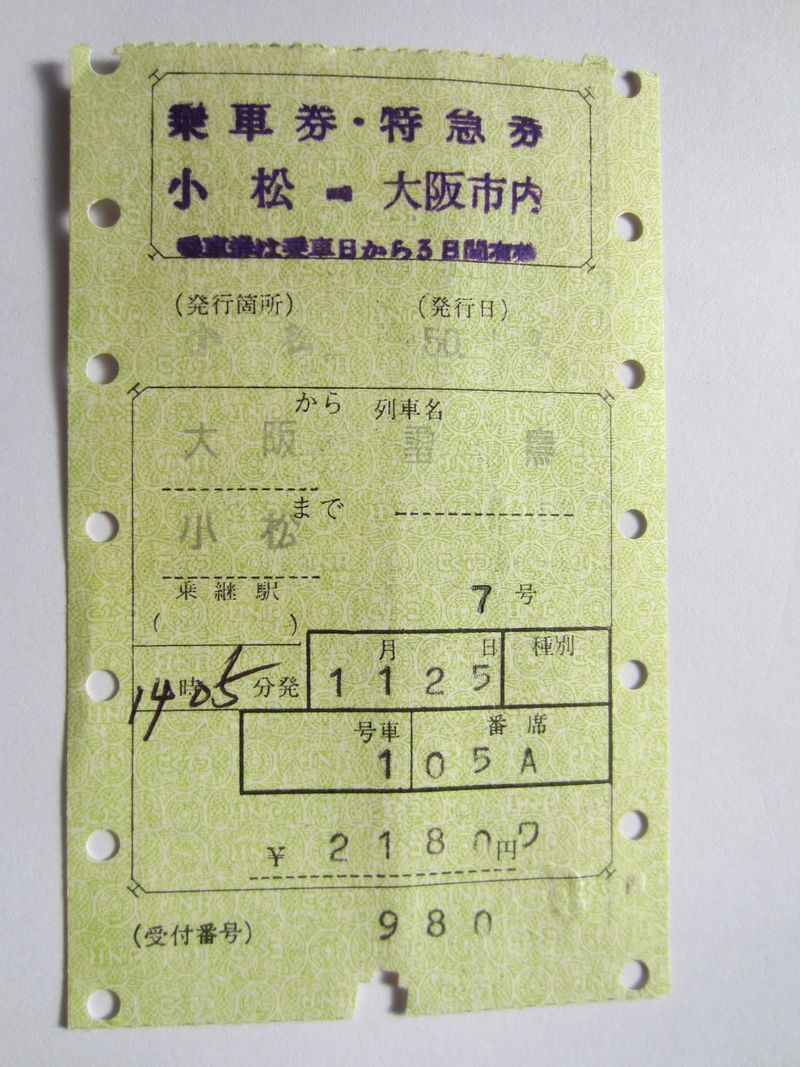 乗車券・特急券
小松 ➡ 大阪市内
乗車券は乗車日から3日間有効
(発行箇所) (発行日)
小 50
から 列車名
大阪 雷鳥
まで
小松
乗継駅 7号
( )
月 日 種別
14時05分発 1125
号車 番席
1 05A
¥ 2180円
(受付番号) 980